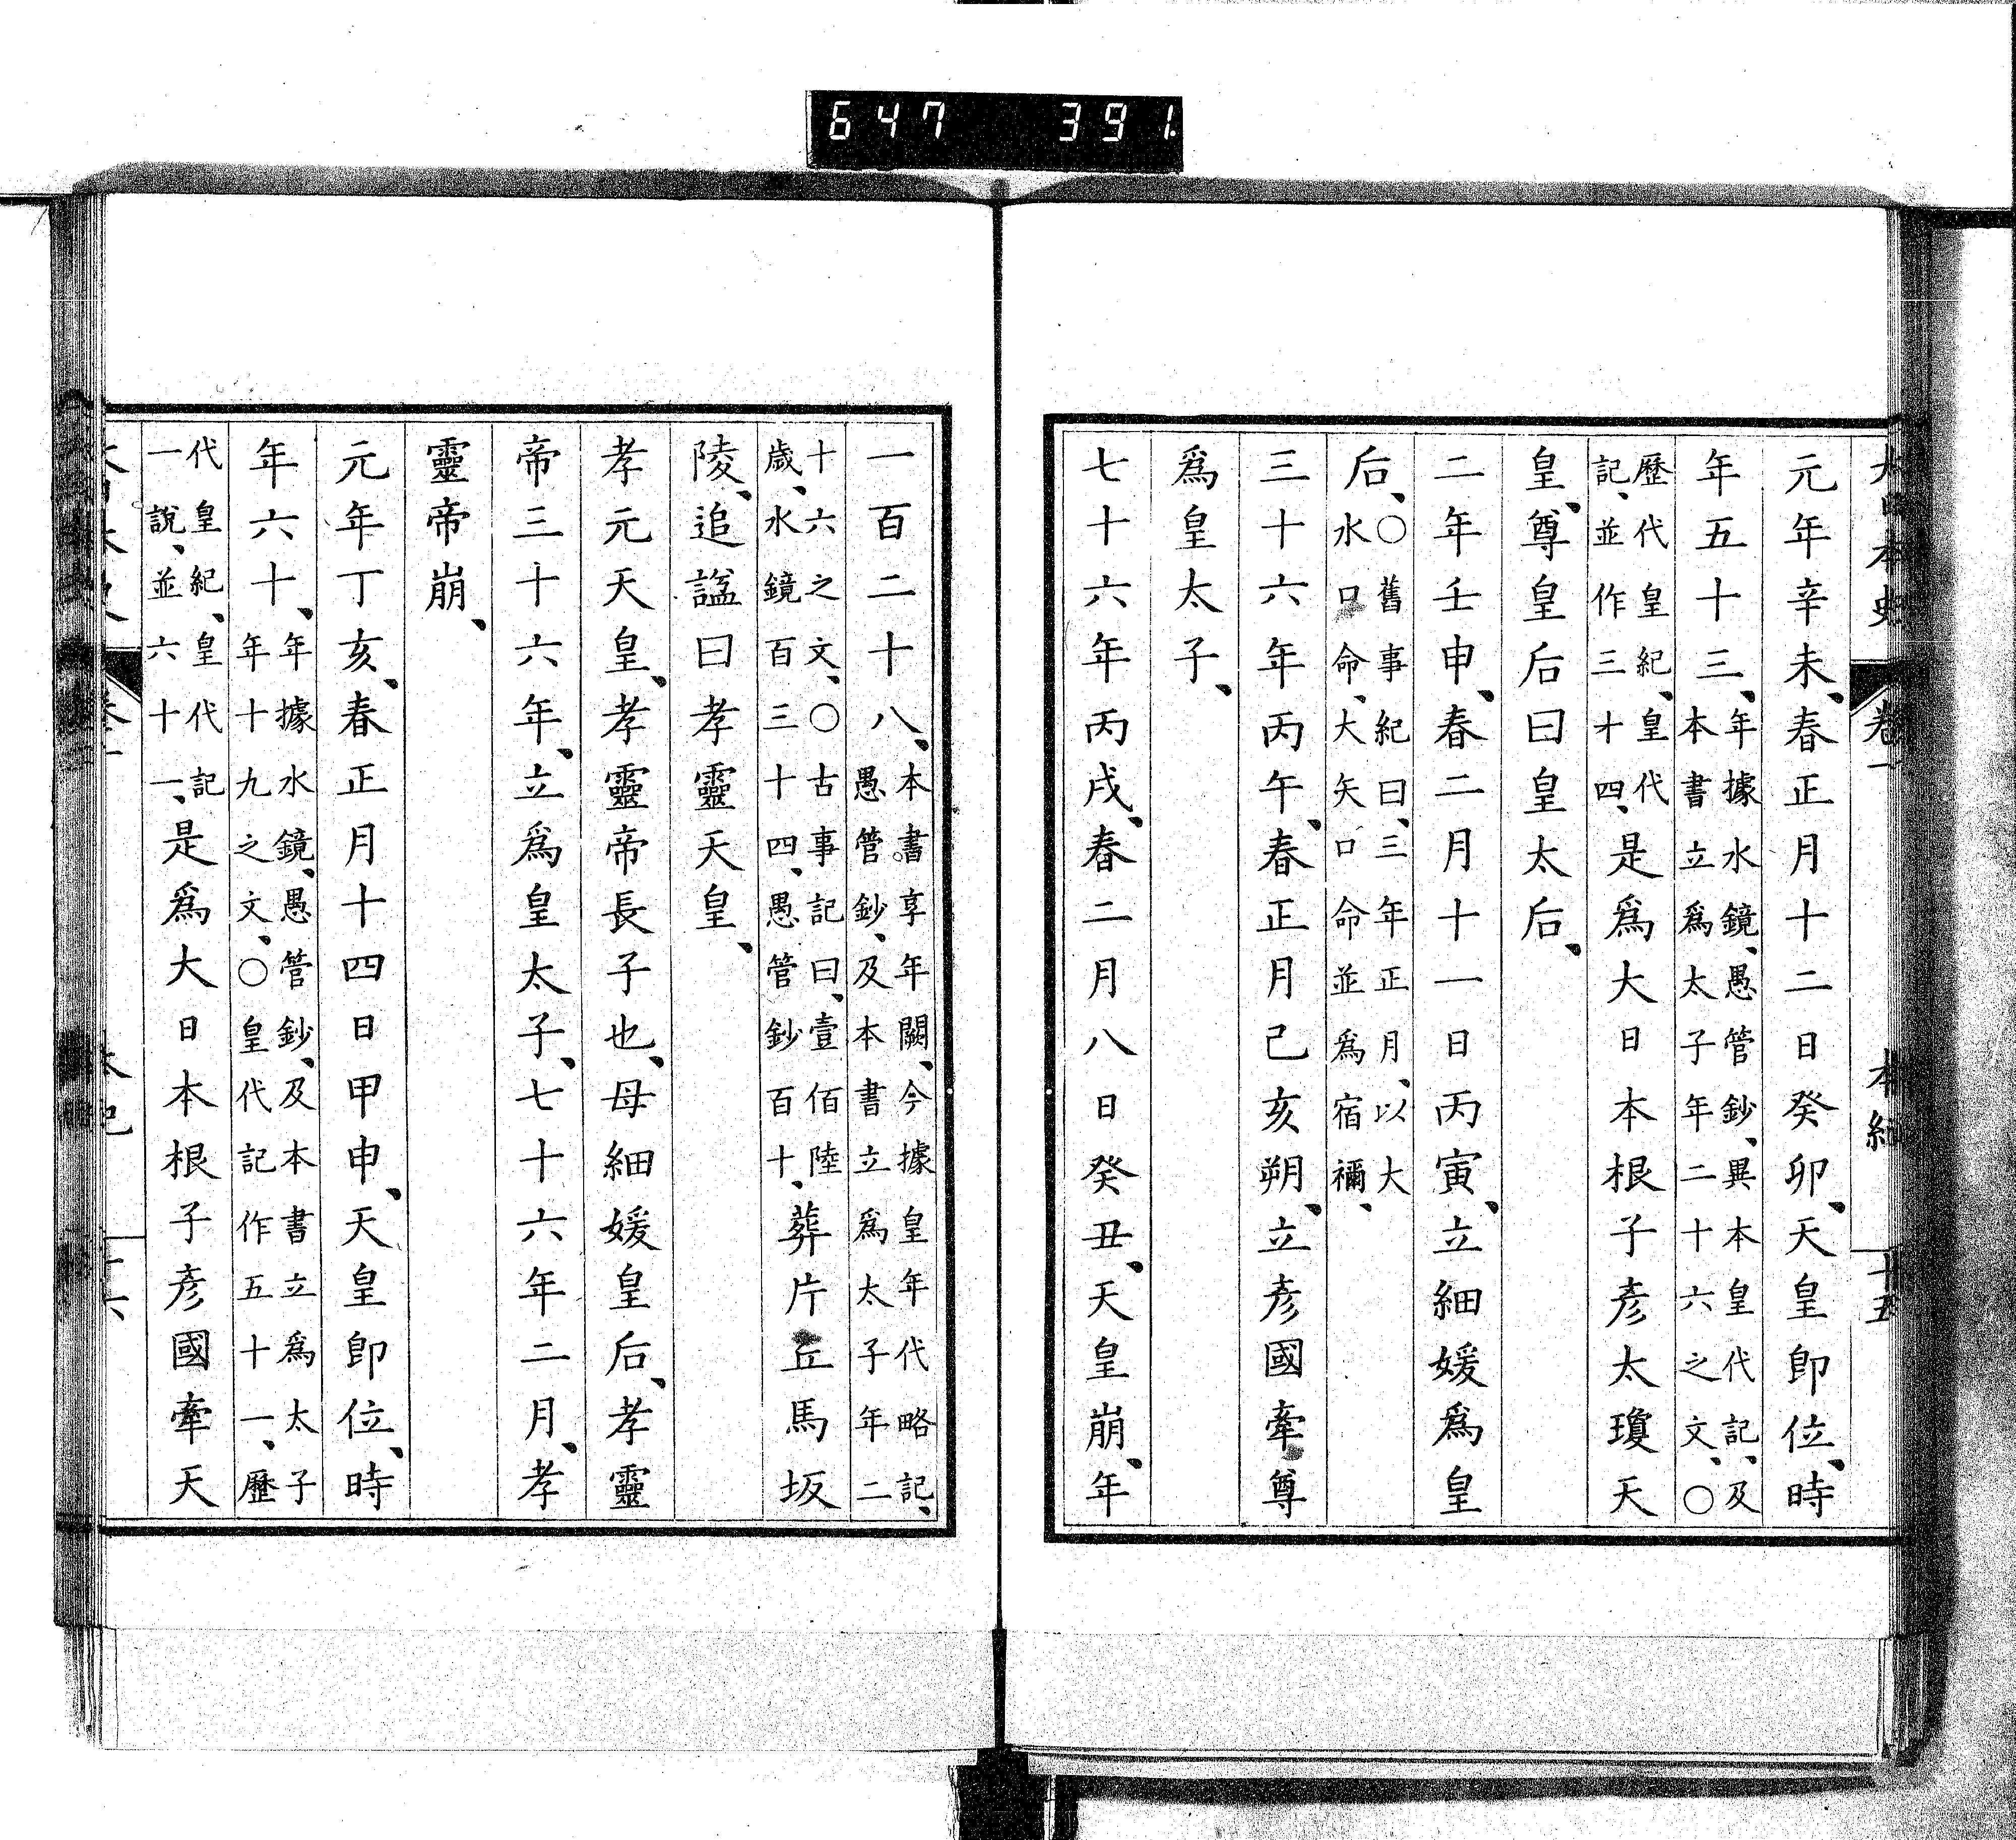 647 391
大日本史 卷一 本紀 十五
元年辛未、春正月十二日癸卯、天皇卽位、時
年五十三、年據水鏡、愚管鈔、異本皇代記、及本書立爲太子年二十六之文、〇
歷代皇紀、皇代記、並作三十四、是爲大日本根子彥太瓊天
皇、尊皇后曰皇太后、
二年壬申、春二月十一日丙寅、立細媛爲皇
后、〇舊事紀曰、三年正月、以大水口命、大矢口命並爲宿禰、
三十六年丙午、春正月己亥朔、立彥國牽尊
爲皇太子、
七十六年丙戌、春二月八日癸丑、天皇崩、年
一百二十八、本書享年闕、今據皇年代略記、愚管鈔、及本書立爲太子年二
十六之文、〇古事記曰、壹佰陸歲、水鏡百三十四、愚管鈔百十、葬片丘馬坂
陵、追諡曰孝靈天皇、
孝元天皇、孝靈帝長子也、母細媛皇后、孝靈
帝三十六年、立爲皇太子、七十六年二月、孝
靈帝崩、
元年丁亥、春正月十四日甲申、天皇卽位、時
年六十、年據水鏡、愚管鈔、及本書立爲太子年十九之文、〇皇代記作五十一、歷
代皇紀、皇代記一說、並六十一、是爲大日本根子彥國牽天